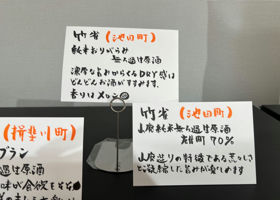 竹雀(池田町)
純米おりがらみ
無ろ過生原酒
濃厚な旨みからくるDRY感は
どんどんお酒がすすみます。
香りはメロン
竹雀(池田町)
山廃純米無ろ過生原酒
雄町70%
山廃造りの特徴である荒々しさ
と凝縮した旨みが楽しめます
(揖斐川町)
ブラン
過生原酒
味が食欲をそそ